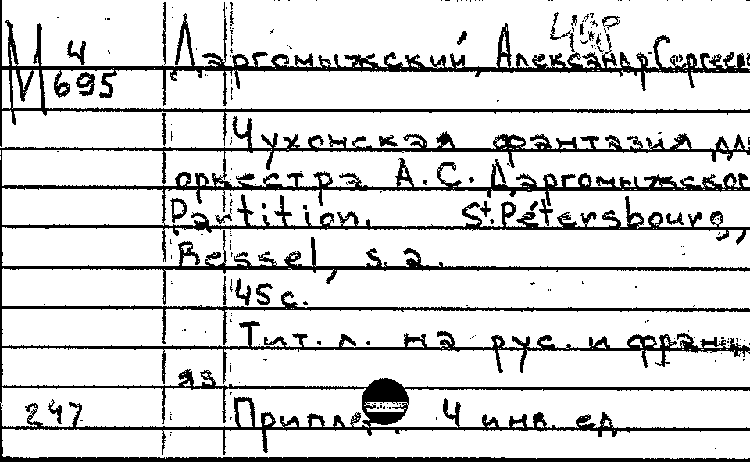 М 4/695
498
Даргомыжский, Александр Сергеев
Чухонская фантазия дл
оркестра А.С. Даргомыжског
Partition. St. Pétersbourg,
Bessel, s.a.
45 с.
Тит. л. на рус. и франц.
яз
247 Приплет. 4 инв. ед.